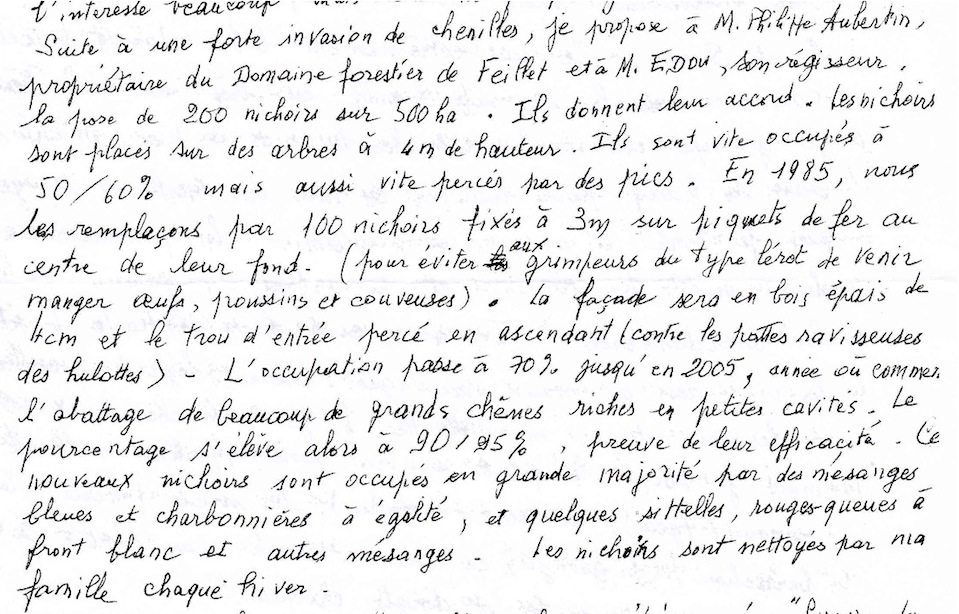 l'intéresse beaucoup
Suite à une forte invasion de chenilles, je propose à M. Philippe Aubertin,
propriétaire du Domaine forestier de Feillet et à M. EDOU, son régisseur.
la pose de 200 nichoirs sur 500 ha. Ils donnent leur accord. Les nichoirs
sont placés sur des arbres à 4m de hauteur. Ils sont vite occupés à
50/60% mais aussi vite percés par des pics. En 1985, nous
les remplaçons par 100 nichoirs fixés à 3m sur piquets de fer au
centre de leur fond. (pour éviter aux grimpeurs du type lérot de venir
manger œufs, poussins et couveuses). La façade sera en bois épais de
4cm et le trou d'entrée percé en ascendant (contre les pattes ravisseuses
des hulottes) - L'occupation passe à 70% jusqu'en 2005, année où commen
l'abattage de beaucoup de grands chênes riches en petites cavités. Le
pourcentage s'élève alors à 90/95%, preuve de leur efficacité. Ce
nouveaux nichoirs sont occupés en grande majorité par des mésanges
bleues et charbonnières à égalité, et quelques sittelles, rouges-queues à
front blanc et autres mésanges. Les nichoirs sont nettoyés par ma
famille chaque hiver.